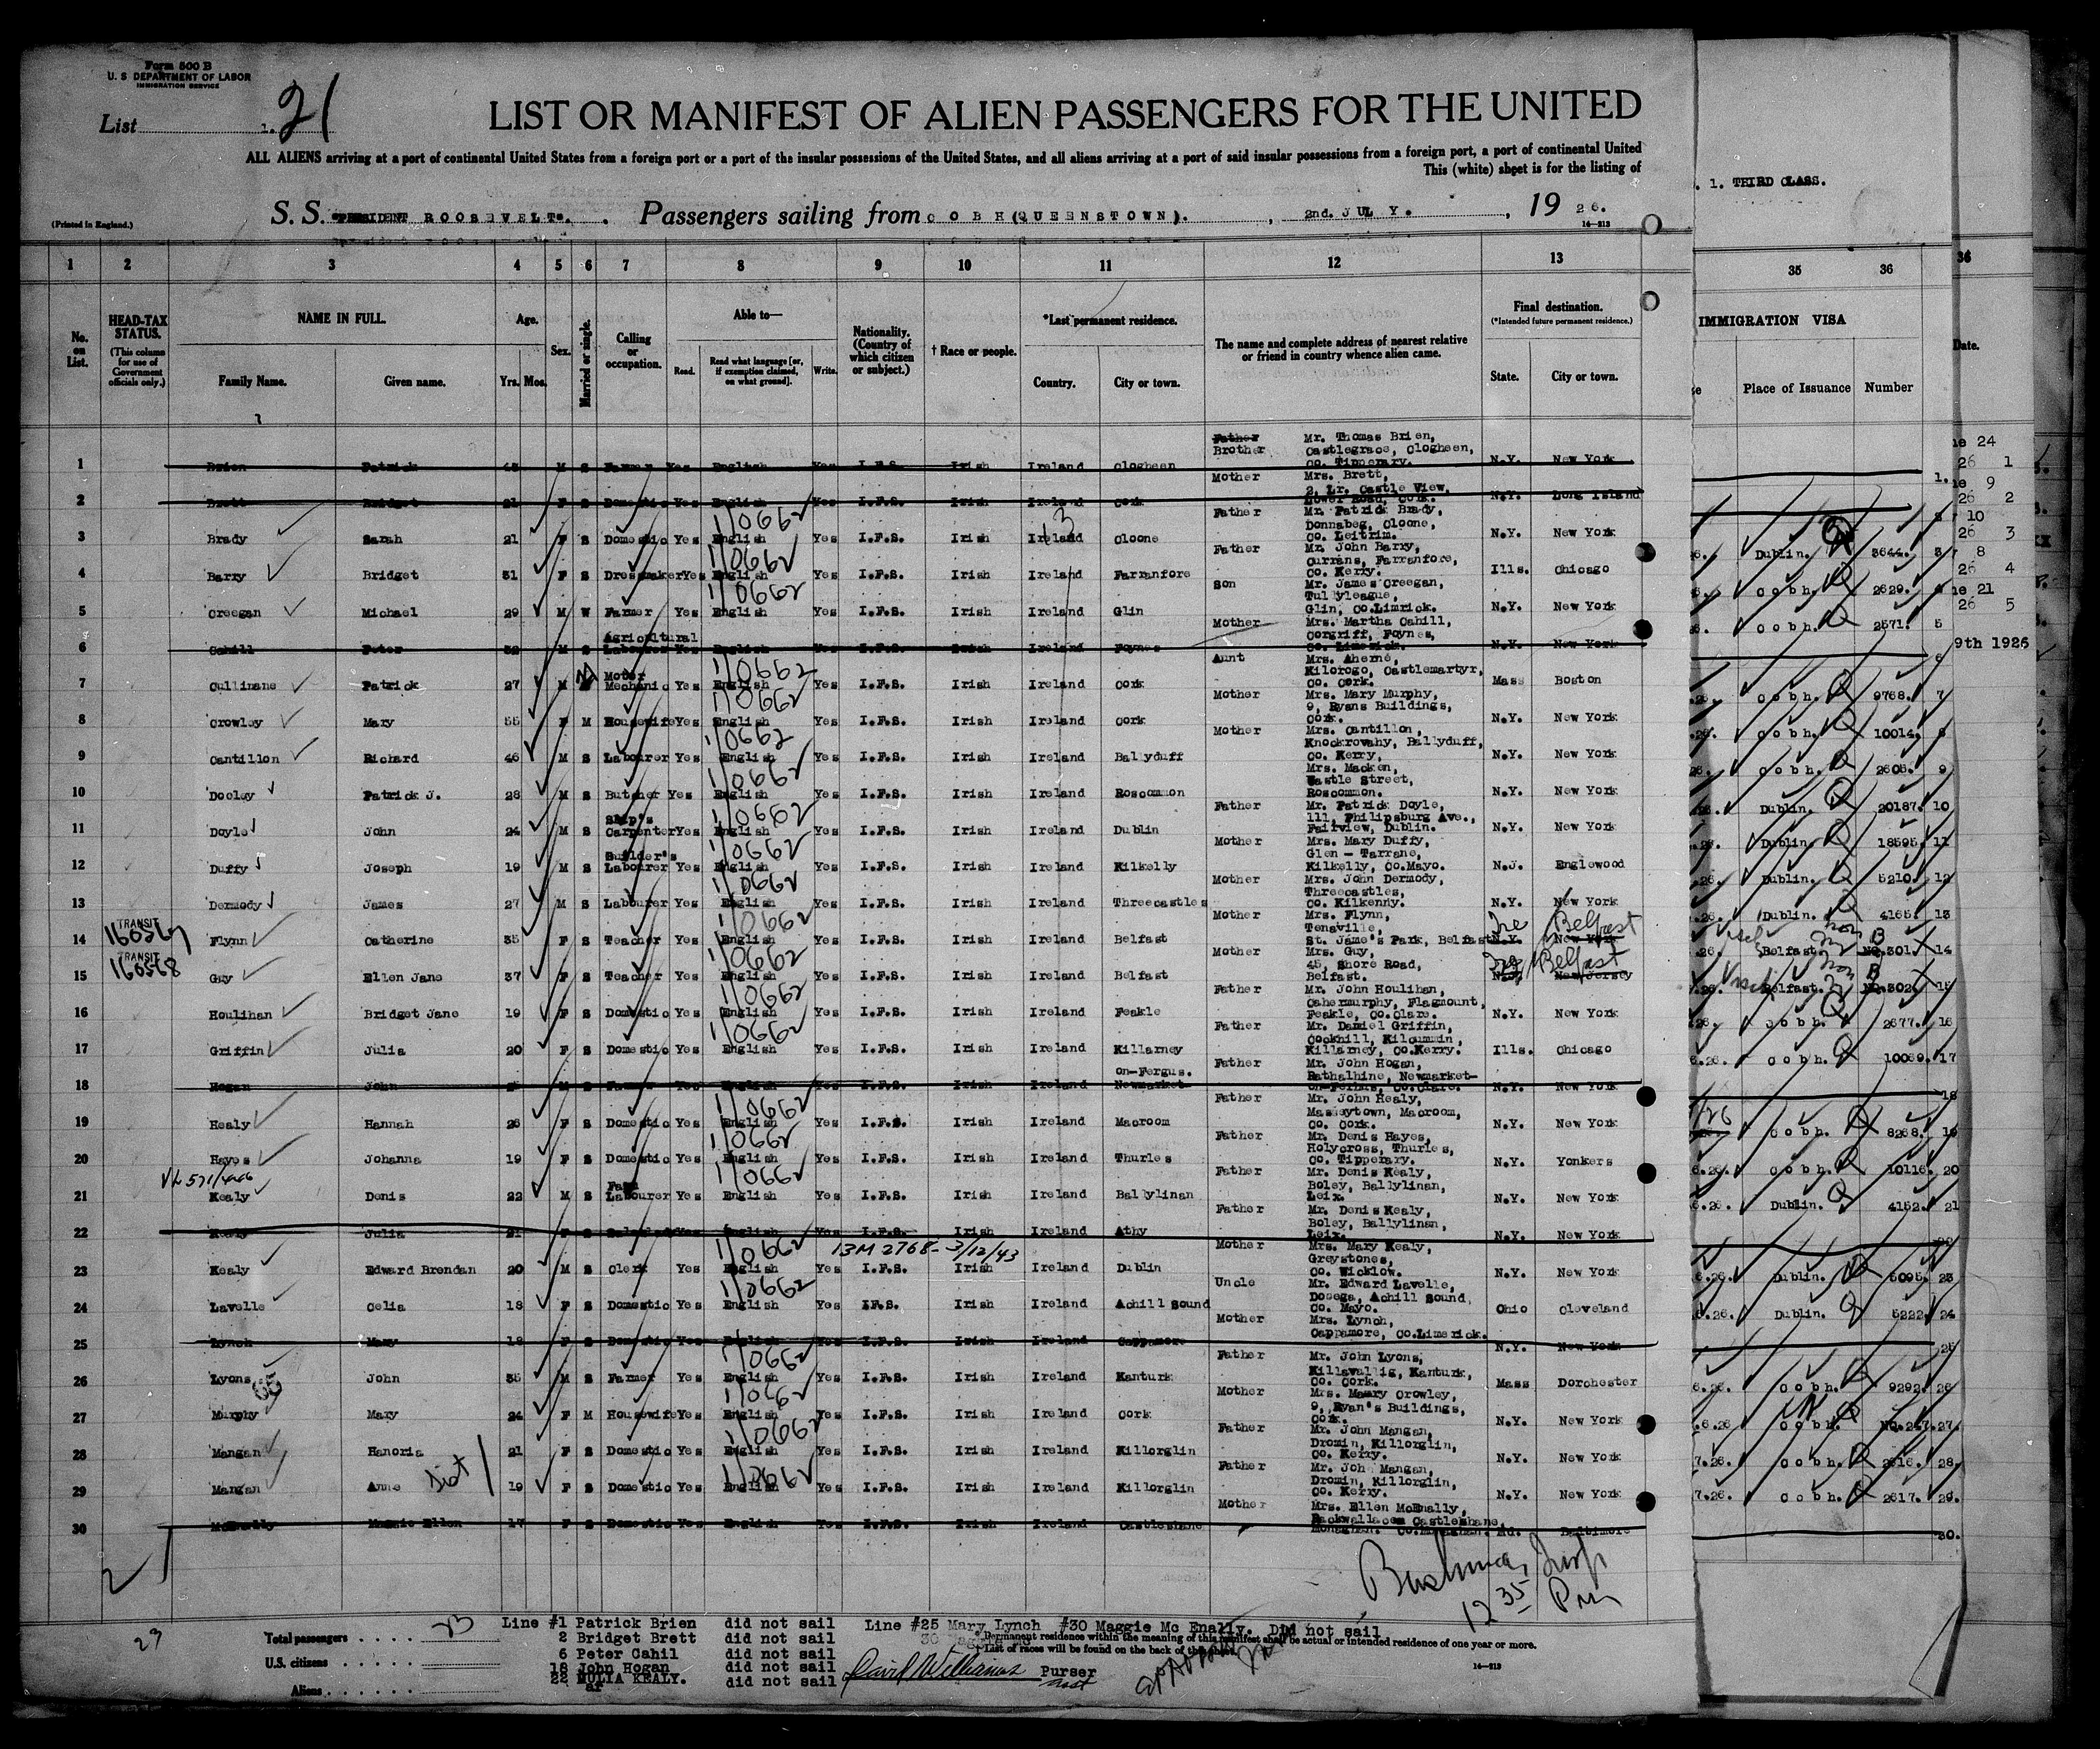 Form 500 B
U. S DEPARTMENT OF LABOR
IMMIGRATION SERVICE
List 1. 21
LIST OR MANIFEST OF ALIEN PASSENGERS FOR THE UNITED
ALL ALIENS arriving at a port of continental United States from a foreign port or a port of the insular possessions of the United States, and all aliens arriving at a port of said insular possessions from a foreign port, a port of continental United
This (white) sheet is for the listing of
(Printed in England.)
S. S. "PRESIDENT ROOSEVELT". Passengers sailing from COBH(QUEENSTOWN). , 2nd. JULY. , 19 26.
14—213
1. THIRD CLASS.
1 2 3 4 5 6 7 8 9 10 11 12 13 35 36 36
No. on List.
HEAD-TAX STATUS.
(This column for use of Government officials only.)
NAME IN FULL.
Family Name. Given name.
Age.
Yrs. Mos.
Sex.
Married or single.
Calling or occupation.
Able to—
Read. Read what language [or, if exemption claimed, on what ground]. Write.
Nationality. (Country of which citizen or subject.)
† Race or people.
*Last permanent residence.
Country. City or town.
The name and complete address of nearest relative or friend in country whence alien came.
Final destination.
(*Intended future permanent residence.)
State. City or town.
IMMIGRATION VISA
Place of Issuance Number
Date.
1 Brien Patrick 45 M S Farmer Yes English Yes I.F.S. Irish Ireland Clogheen Father Brother Mr. Thomas Brien, Castlegrace, Clogheen, Co. Tipperary. N.Y. New York
2 Brett Bridget 21 F S Domestic Yes English Yes I.F.S. Irish Ireland Cork Mother Mrs. Brett, 2, Lr. Castle View, Lower Road, Cork. N.Y. Long Island
3 Brady Sarah 21 F S Domestic Yes English 1/0662 Yes I.F.S. Irish Ireland Cloone Father Mr. Patrick Brady, Donnabeg, Cloone, Co. Leitrim. N.Y. New York Dublin. 3644. 3
4 Barry Bridget 31 F S Dressmaker Yes English 1/0662 Yes I.F.S. Irish Ireland Farranfore Father Mr. John Barry, Currans, Farranfore, Co. Kerry. Ills. Chicago Cobh. 2629. 4
5 Creegan Michael 29 M W Farmer Yes English 1/0662 Yes I.F.S. Irish Ireland Glin Son Mr. James Creegan, Tullyleague, Glin, Co.Limrick. N.Y. New York Cobh. 2571. 5
6 Cahill Peter 32 M S Agricultural Labourer Yes English Yes I.F.S. Irish Ireland Foynes Mother Mrs. Martha Cahill, Corgriff, Foynes, Co. Limerick. N.Y. New York 6
7 Cullinane Patrick 27 M Motor Mechanic Yes English 1/0662 Yes I.F.S. Irish Ireland Cork Aunt Mrs. Aherne, Kilcrogo, Castlemartyr, Co. Cork. Mass Boston Cobh. 9768. 7
8 Crowley Mary 55 F M Housewife Yes English 1/0662 Yes I.F.S. Irish Ireland Cork Mother Mrs. Mary Murphy, 9, Ryans Buildings, Cork. N.Y. New York Cobh. 10014. 8
9 Cantillon Richard 46 M S Labourer Yes English 1/0662 Yes I.F.S. Irish Ireland Ballyduff Mother Mrs. Cantillon, Knockrovahy, Ballyduff, Co. Kerry, N.Y. New York Cobh. 2605. 9
10 Dooley Patrick J. 28 M S Butcher Yes English 1/0662 Yes I.F.S. Irish Ireland Roscommon Mrs. Macken, Castle Street, Roscommon. N.Y. New York Dublin. 20187. 10
11 Doyle John 24 M S Ship's Carpenter Yes English 1/0662 Yes I.F.S. Irish Ireland Dublin Father Mr. Patrick Doyle, 111, Philipsburg Ave., Fairview, Dublin. N.Y. New York Dublin. 18595. 11
12 Duffy Joseph 19 M S Builder's Labourer Yes English 1/0662 Yes I.F.S. Irish Ireland Kilkelly Mother Mrs. Mary Duffy, Glen - Tarrane, Kilkelly, Co.Mayo. N.J. Englewood Dublin. 5210. 12
13 Dermody James 27 M S Labourer Yes English 1/0662 Yes I.F.S. Irish Ireland Threecastles Mother Mrs. John Dermody, Threecastles, Co. Kilkenny. N.Y. New York Dublin. 4165. 13
14 TRANSIT Flynn Catherine 35 F S Teacher Yes English 1/0662 Yes I.F.S. Irish Ireland Belfast Mother Mrs. Flynn, Tenaville, St. Jame's Park, Belfast N.Y. New York Ire Belfast Belfast. No.301. 14
15 TRANSIT 160568 Guy Ellen Jane 37 F S Teacher Yes English 1/0662 Yes I.F.S. Irish Ireland Belfast Mother Mrs. Guy, 45, Shore Road, Belfast. N.J. New Jersey Ire Belfast Belfast. No.302. 15
16 Houlihan Bridget Jane 19 F S Domestic Yes English 1/0662 Yes I.F.S. Irish Ireland Feakle Father Mr. John Houlihan, Cahermurphy, Flagmount, Feakle, Co.Clare. N.Y. New York Cobh. 2677. 16
17 Griffin Julia 20 F S Domestic Yes English 1/0662 Yes I.F.S. Irish Ireland Killarney Father Mr. Daniel Griffin, Cockhill, Kilcummin, Killarney, Co.Kerry. Ills. Chicago Cobh. 10089. 17
18 Hogan John M S Farmer Yes English Yes I.F.S. Irish Ireland Newmarket- on-Fergus. Father Mr. John Hogan, Rathalhine, Newmarket- on-Ferhus, Co.Clare. N.Y. New York 18
19 Healy Hannah 26 F S Domestic Yes English 1/0662 Yes I.F.S. Irish Ireland Macroom Father Mr. John Healy, Masseytown, Macroom, Co. Cork. N.Y. New York Cobh. 8268. 19
20 Hayes Johanna 19 F S Domestic Yes English 1/0662 Yes I.F.S. Irish Ireland Thurles Father Mr. Denis Hayes, Holycross, Thurles, Co. Tipperary. N.Y. Yonkers Cobh. 10116. 20
21 Kealy Denis 22 M S Farm Labourer Yes English 1/0662 Yes I.F.S. Irish Ireland Ballylinan Father Mr. Denis Kealy, Boley, Ballylinan, Leix. N.Y. New York Dublin. 4152. 21
22 Kealy Julia 21 F S Yes English Yes I.F.S. Irish Ireland Athy Father Mr. Denis Kealy, Boley, Ballylinan, Leix. N.Y. New York 22
13M 2768- 3/12/43
23 Kealy Edward Brendan 20 M S Clerk Yes English 1/0662 Yes I.F.S. Irish Ireland Dublin Mother Mrs. Mary Kealy, Greystones, Co. Wicklow. N.Y. New York Dublin. 5095. 23
24 Lavelle Celia 18 F S Domestic Yes English 1/0662 Yes I.F.S. Irish Ireland Achill Sound Uncle Mr. Edward Lavelle, Dooega, Achill Sound, Co. Mayo. Ohio Cleveland Dublin. 5222. 24
25 Lynch Mary 18 F S Domestic Yes English Yes I.F.S. Irish Ireland Cappamore Mother Mrs. Lynch, Cappamore, Co.Limerick. N.Y. New York 25
26 Lyons John 35 M S Farmer Yes English 1/0662 Yes I.F.S. Irish Ireland Kanturk Father Mr. John Lyons, Killavallig, Kanturk, Co. Cork. Mass Dorchester Cobh. 9292. 26
27 Murphy Mary 24 F M Housewife Yes English 1/0662 Yes I.F.S. Irish Ireland Cork Mother Mrs. Maury Crowley, 9, Ryan's Buildings, Cork. N.Y. New York Cobh. No.247. 27.
28 Mangan Hanoria 21 F S Domestic Yes English 1/0662 Yes I.F.S. Irish Ireland Killorglin Father Mr. John Mangan, Dromin, Killorglin, Co. Kerry. N.Y. New York Cobh. 2616. 28.
29 Mangan Anne 19 F S Domestic Yes English 1/0662 Yes I.F.S. Irish Ireland Killorglin Father Mr. Joh Mangan, Dromin, Killorglin, Co. Kerry. N.Y. New York Cobh. 2617. 29.
30 McEnally Maggie Ellen 17 F S Domestic Yes English Yes I.F.S. Irish Ireland Castleshane Mother Mrs. Ellen McEnally, Rackwallacem Castleshane, Monaghan. Co.Monaghan. Md. Baltimore 30.
9th 1926
12 35 Pm
Total passengers 23
U.S. citizens
Aliens
Line #1 Patrick Brien did not sail
2 Bridget Brett did not sail
6 Peter Cahil did not sail
18 John Hogan did not sail
22 JULIA KEALY. did not sail
Line #25 Mary Lynch #30 Maggie Mc Enally. Did not sail
* Permanent residence within the meaning of this manifest shall be actual or intended residence of one year or more.
† List of races will be found on the back of this sheet.
David Williams Purser
14—213